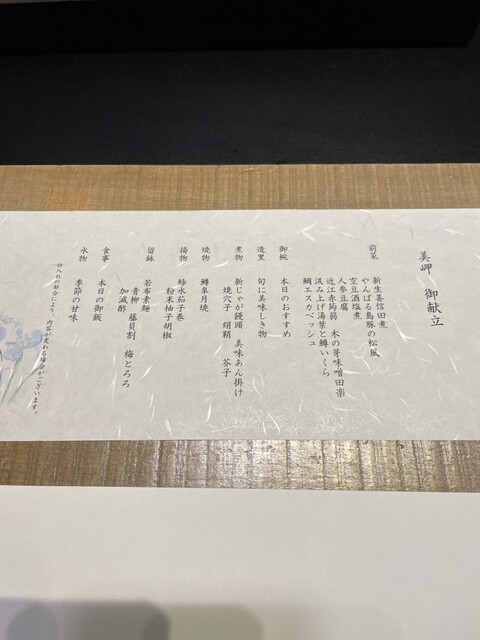 美岬 御献立
前菜
新生姜信田煮
やんばる島豚の松風
空豆酒塩煮
人参豆腐
近江赤蒟蒻 木の芽味噌田楽
汲み上げ湯葉と鱒いくら
鯛エスカベッシュ
御椀 本日のおすすめ
造里 旬に美味しき物
煮物 新じゃが饅頭 美味あん掛け
焼穴子 絹鞘 芥子
焼物 鱒皐月焼
揚物 鱚水茄子巻
粉末柚子胡椒
留鉢 若布素麺
青柳 藤貝割 梅とろろ
加減酢
食事 本日の御飯
水物 季節の甘味
仕入れの都合により、内容が変わる場合がございます。